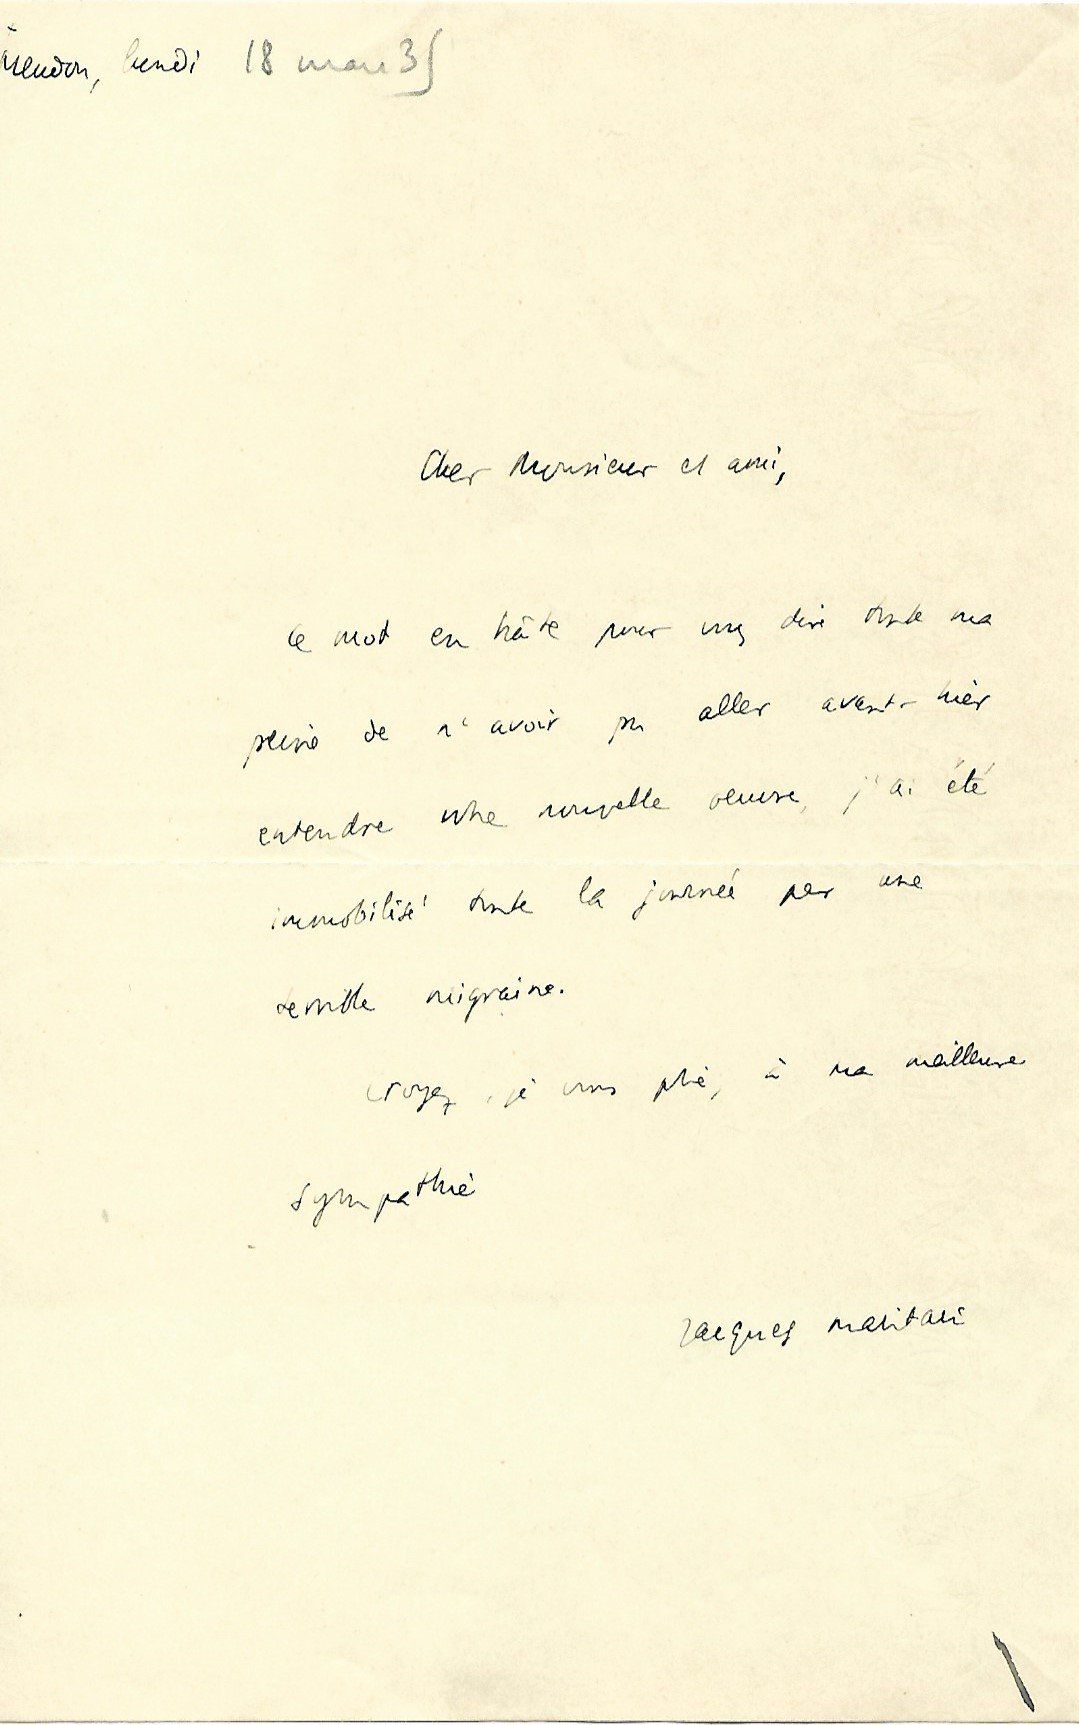 Meudon, lundi 18 mars 35
Cher Monsieur et ami,
Ce mot en hâte pour vous dire toute ma
peine de n'avoir pu aller avant-hier
entendre votre nouvelle oeuvre, j'ai été
immobilisé toute la journée par une
terrible migraine.
Croyez, je vous prie, à ma meilleure
sympathie
Jacques Maritain